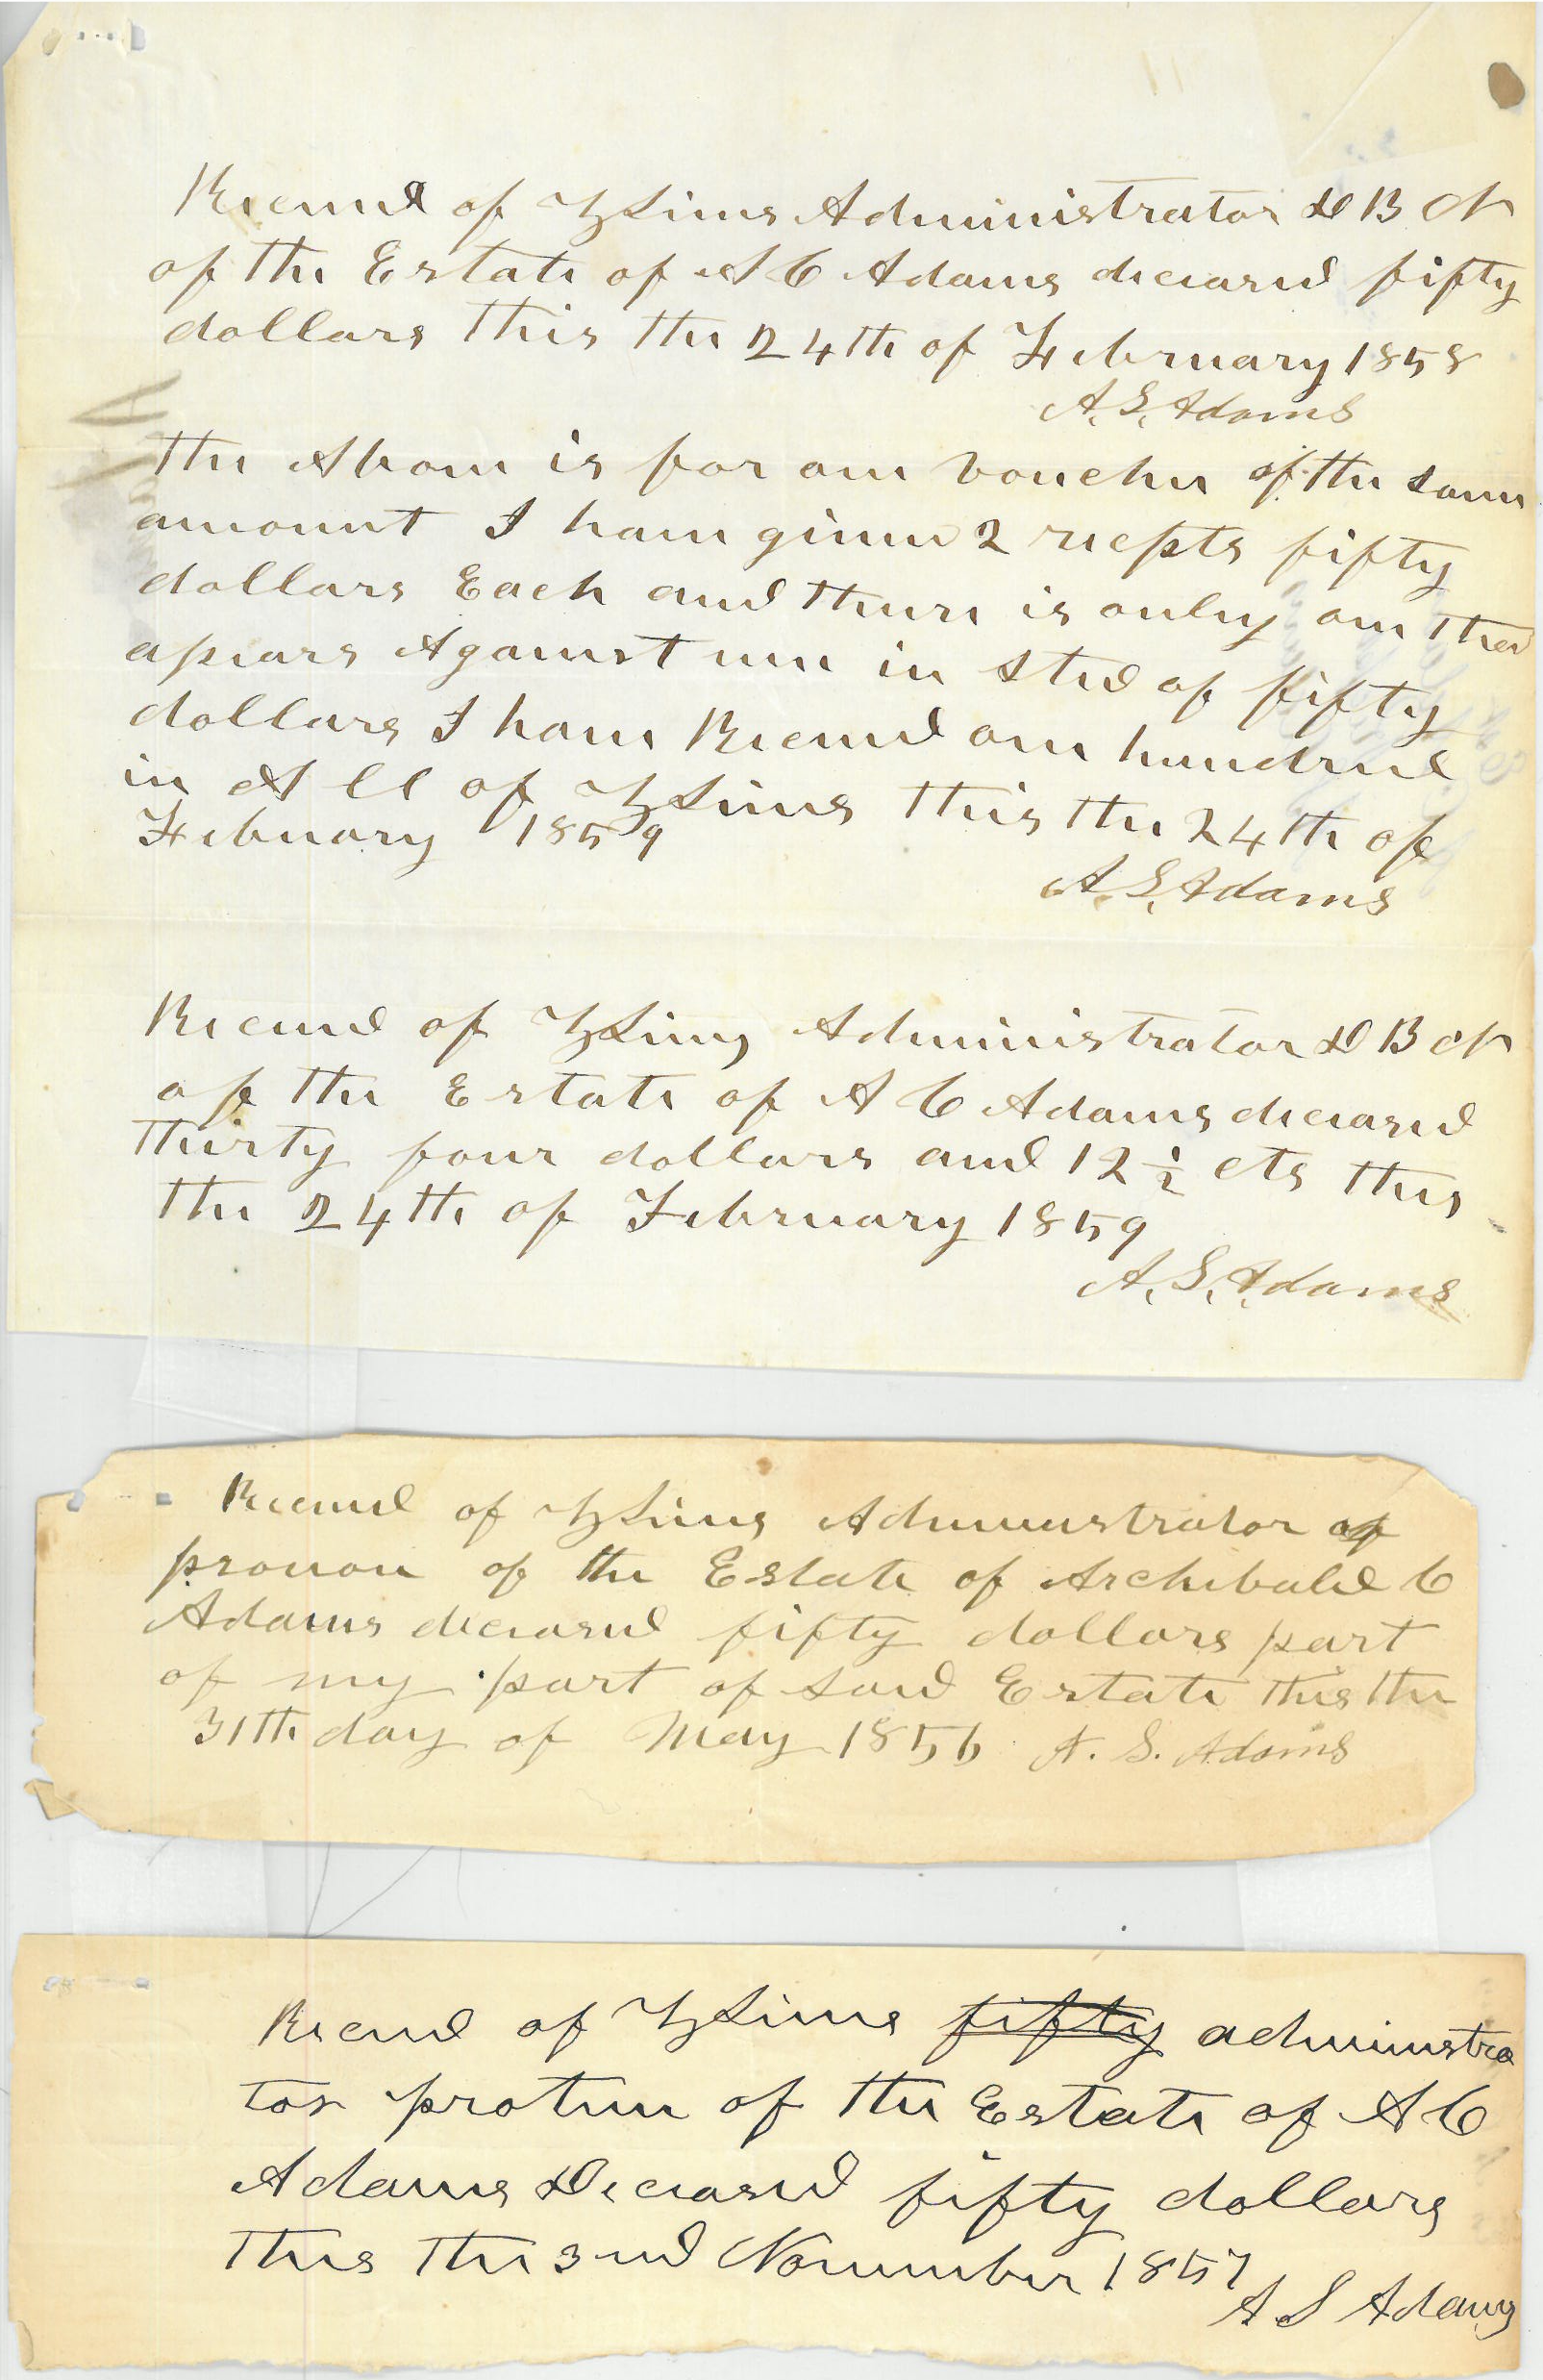 Recived of Z Sims Administrator D B N
of the Estate of A C Adams deceasd fifty
dollars this the 24th of February 1858
A. S. Adams
the Above is for one voucher of the same
amount I have given 2 recpts fifty
dollars Each and there is only one that
apears Against me in sted of fifty
dollars I have Recived one hundred
in All of Z Sims this the 24th of
Febuary 1859
A. S. Adams
Recived of Z Sims Administrator D B N
of the Estate of A C Adams deceasd
thirty four dollars and 12 ½ cts this
the 24th of February 1859
A. S. Adams
Recived of Z Sims Administrator of
of the Estate of Archibald C
Adams deceasd fifty dollars part
of my part of said Estate this the
31th day of May 1856 A. S. Adams
Recivd of Z Sims fifty administra
tor protem of the Estate of A C
Adams Deceasd fifty dollars
this the 3rd November 1857
A S Adams